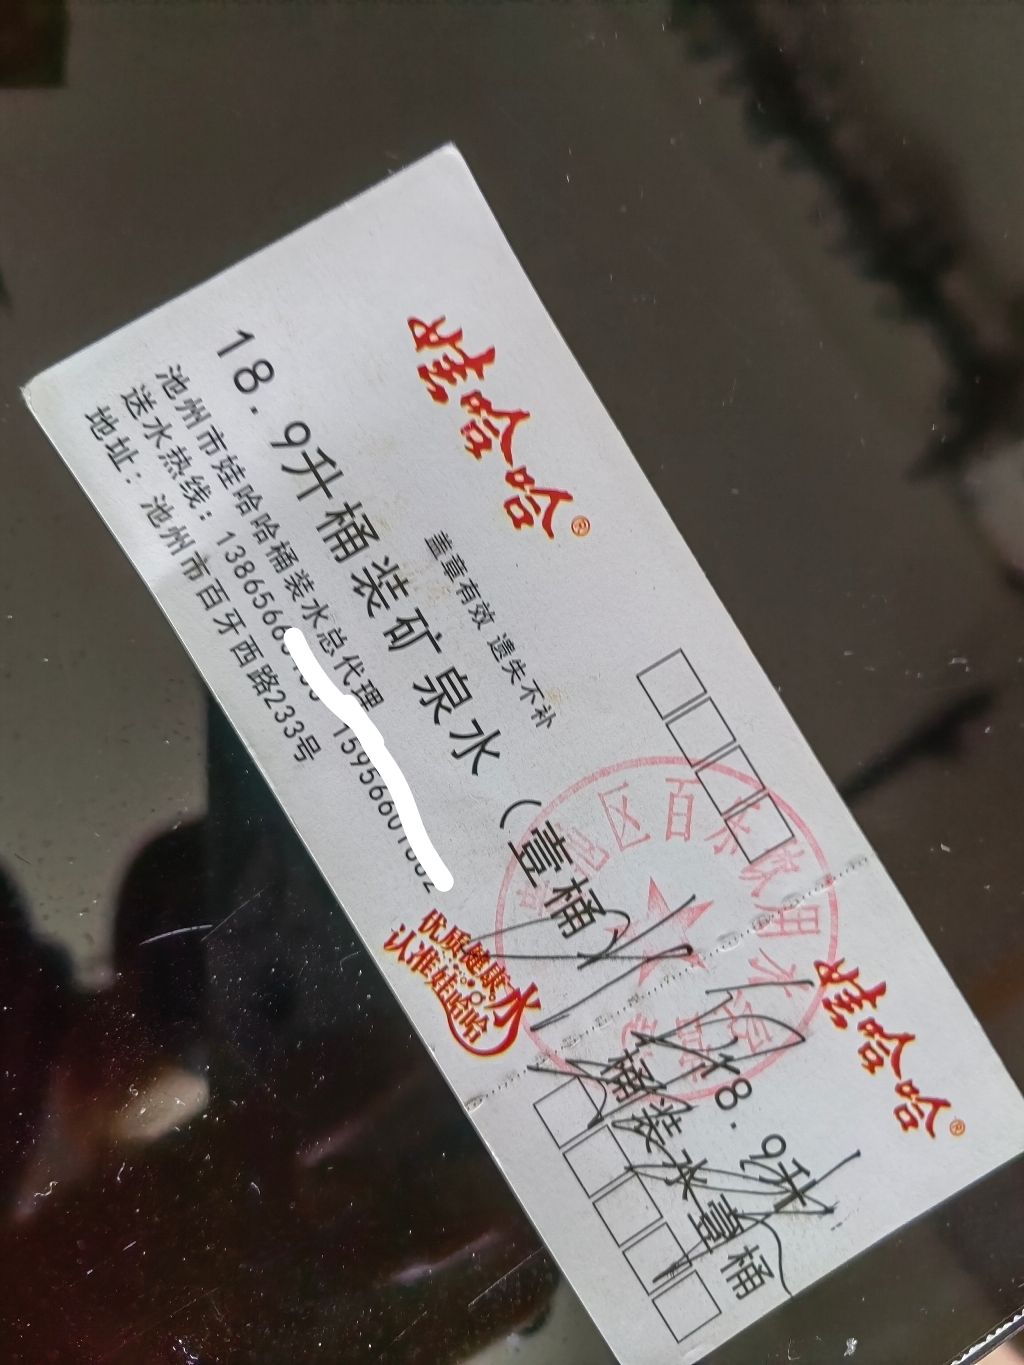 娃哈哈®
盖章有效 遗失不补
18.9升桶装矿泉水（壹桶）
池州市娃哈哈桶装水总代理
送水热线：1386566 1595660
地址：池州市百牙西路233号
优质健康水
认准娃哈哈
娃哈哈®
18.9升
桶装水壹桶
区百